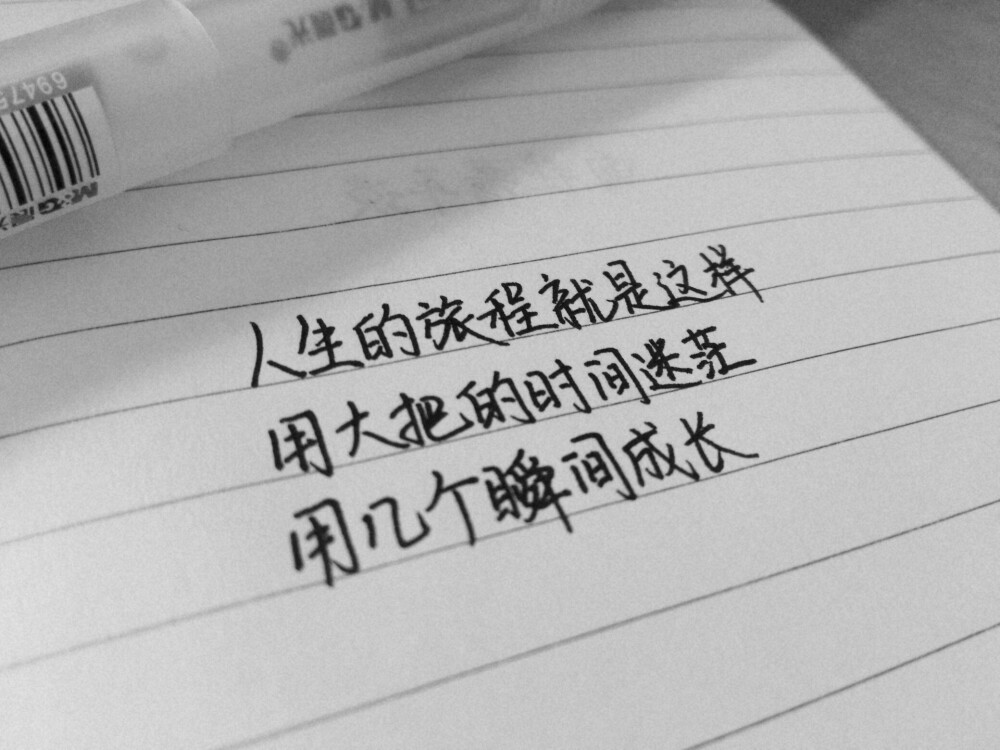 69475
M&G晨光
M&G晨光
人生的旅程就是这样
用大把的时间迷茫
用几个瞬间成长